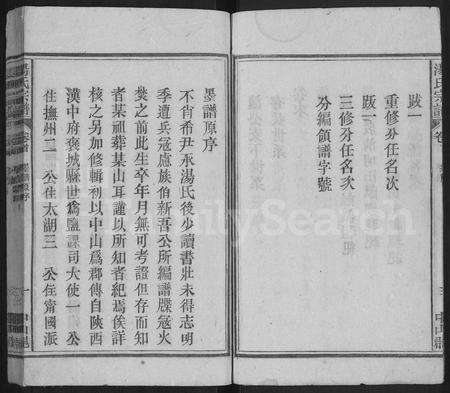 湯氏宗譜
卷
跋一
重修分任名次
跋一
三修分任名次
分編領譜字號
中山郡
湯氏宗譜
卷首
墨譜原序
不肖希尹承湯氏後少讀書壯未得志明
季遭兵寇慮族伯新吾公所編譜牒寇火
焚之前此生卒年月無可考證但存而知
者某祖葬某山耳謹以所知者紀焉俟詳
核之另加修輯初以中山爲郡傳自陝西
漢中府褒城縣世爲鹽課司大使一　公
住撫州二　公住太湖三　公住甯國派
一
中山郡
FamilySearch